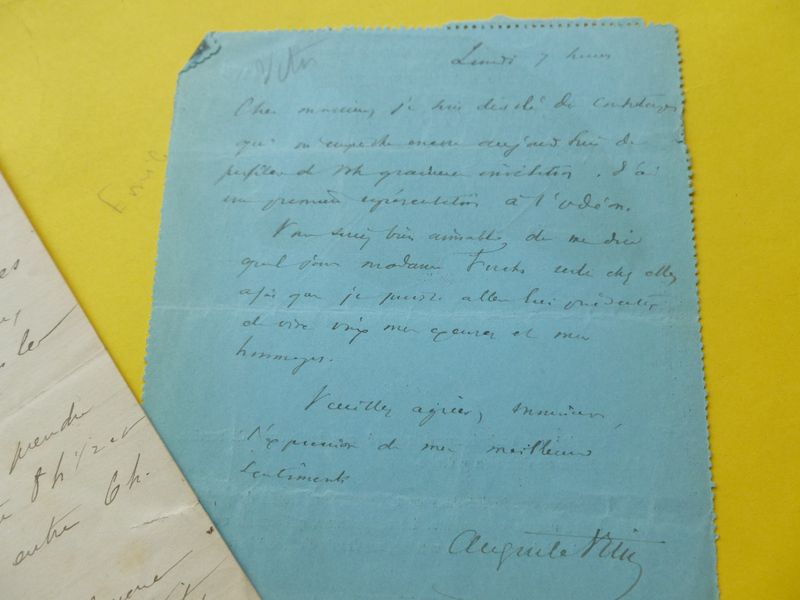 Vitu
Lundi 7 heures
Cher monsieur, je suis désolé du contretemps
qui m'empêche encore aujourd'hui de
profiter de votre gracieuse invitation. J'ai
une première représentation à l'Odéon.
Vous seriez bien aimable, de me dire
quel jour madame Fuchs reste chez elle,
afin que je puisse aller lui présenter
de vive voix mes excuses et mes
hommages.
Veuillez agréer, monsieur,
l'expression de mes meilleurs
sentiments
Auguste Vitu
es
prendre
8h 1/2 et
entre 6h.